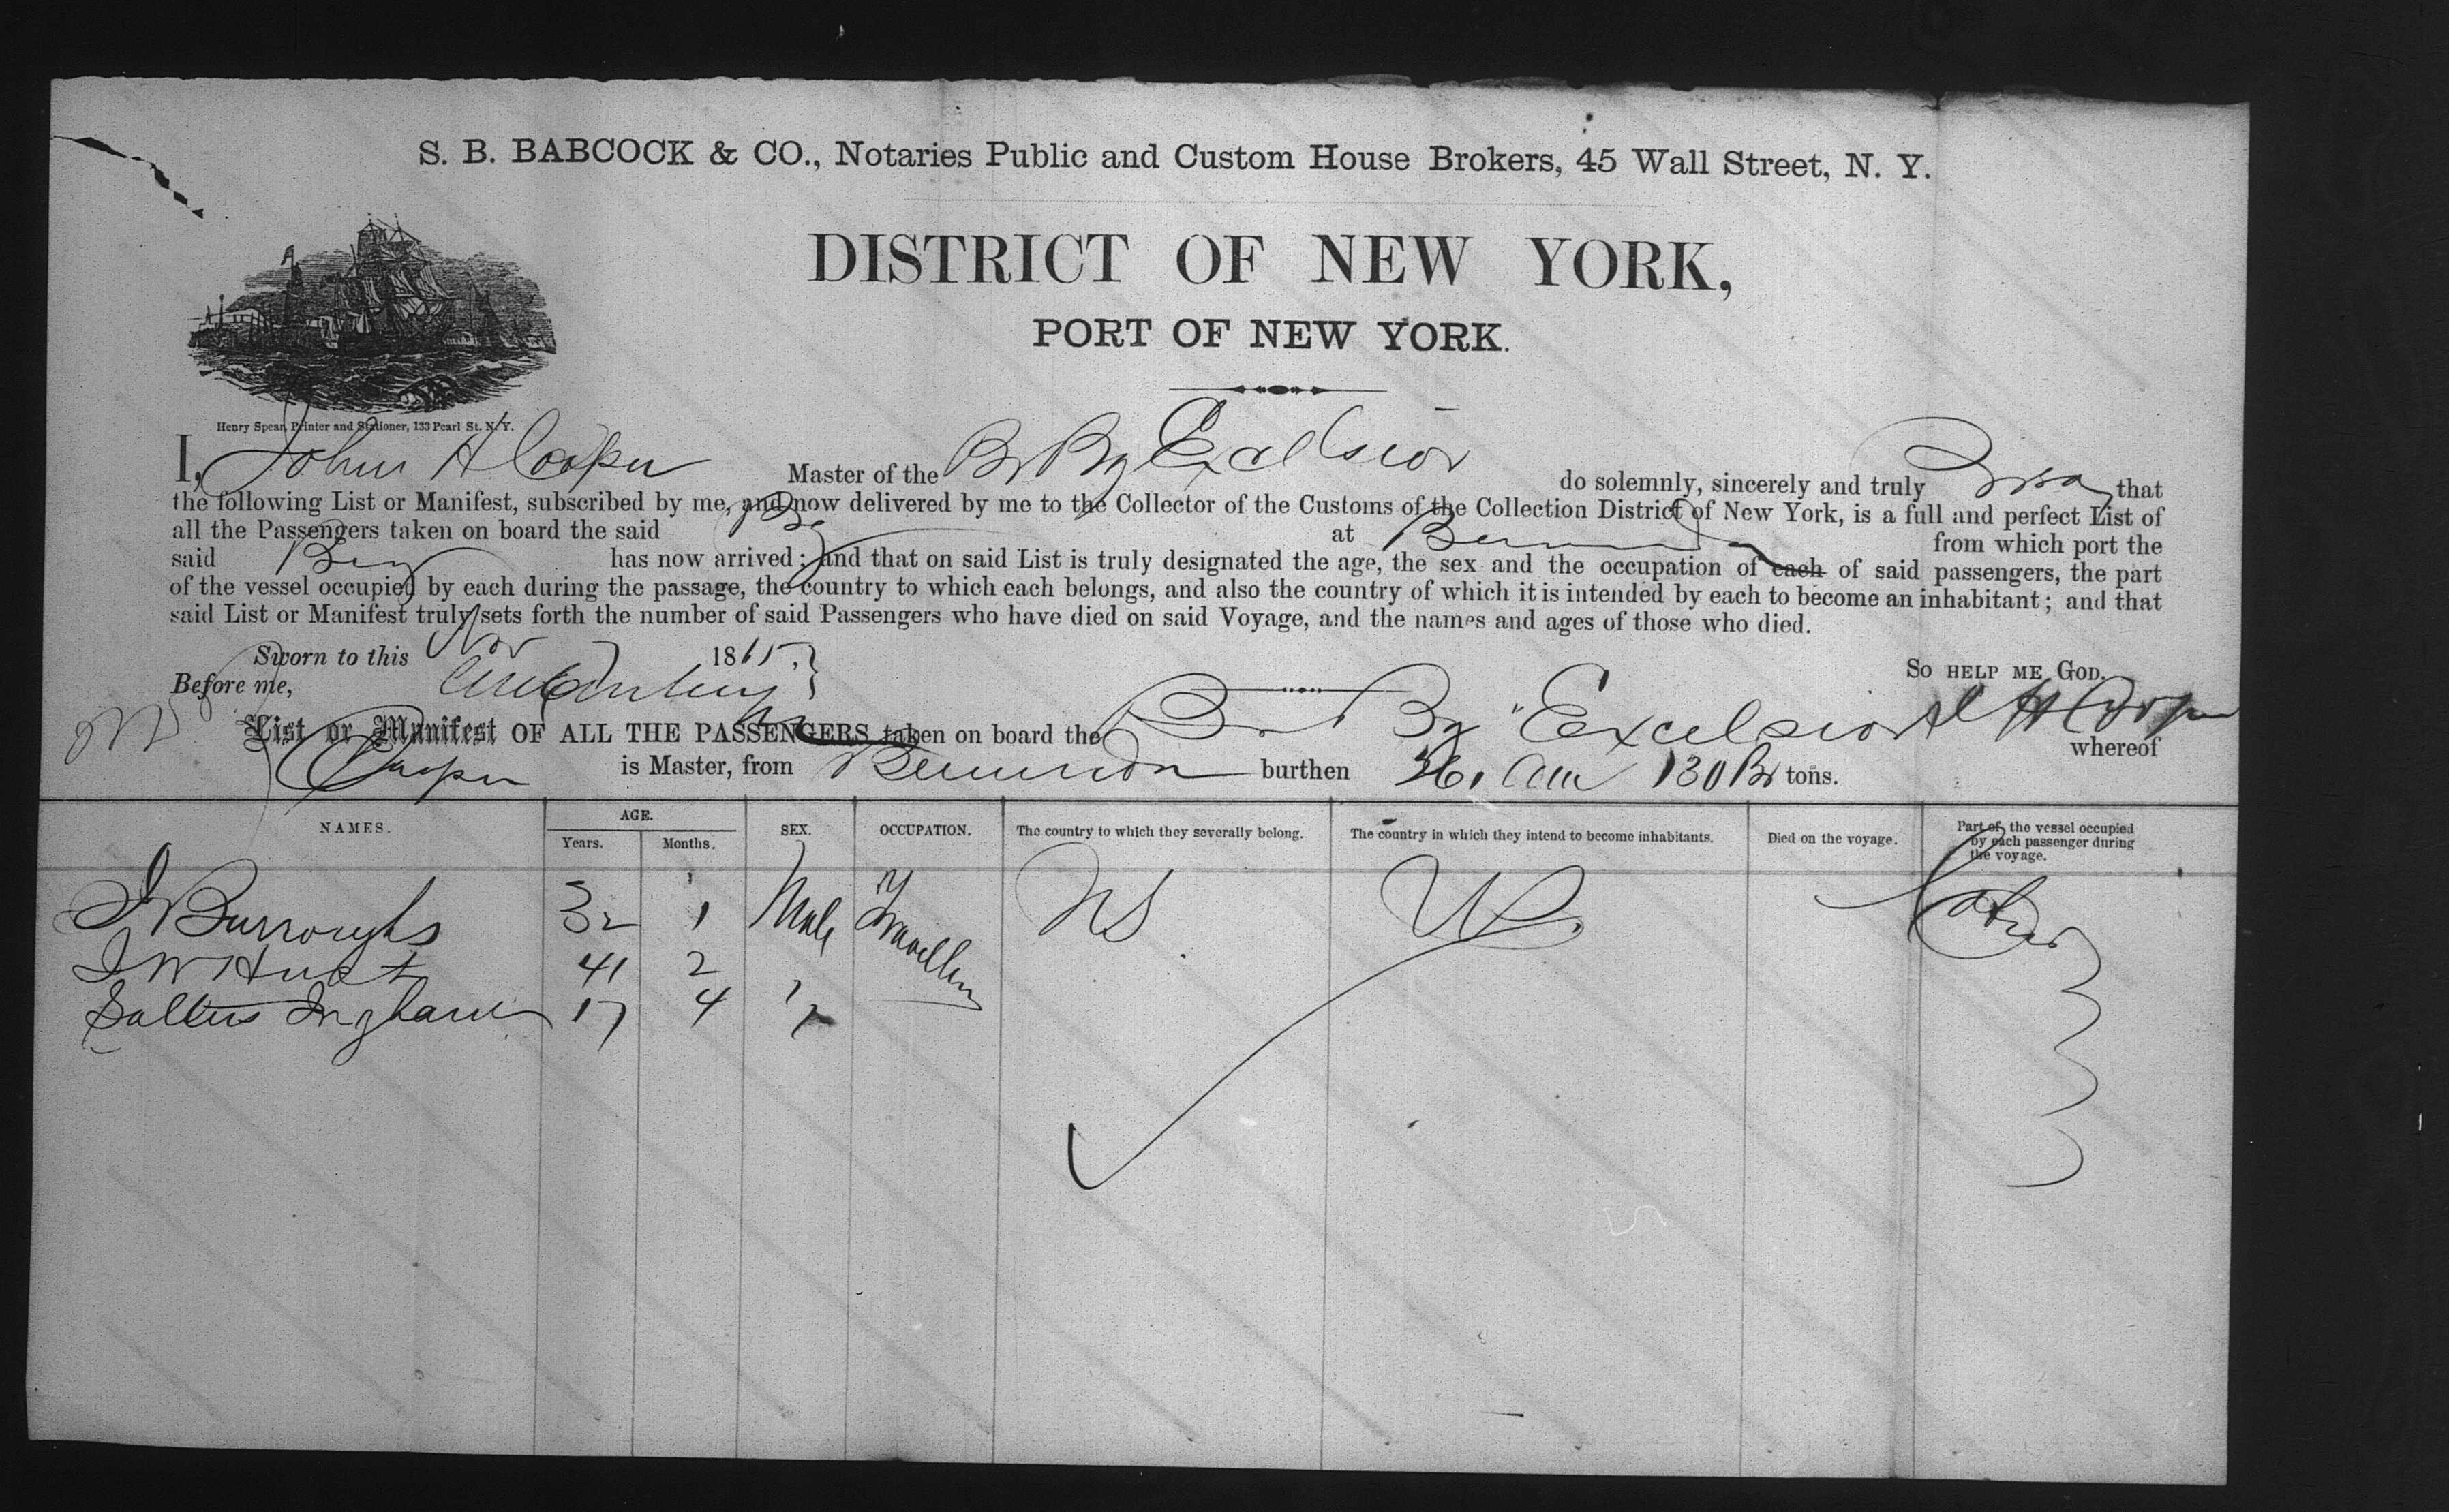 S. B. BABCOCK & CO., Notaries Public and Custom House Brokers, 45 Wall Street, N. Y.
DISTRICT OF NEW YORK,
PORT OF NEW YORK.
Henry Spear, Printer and Stationer, 133 Pearl St. N.Y.
I, John H Cooper Master of the Br Bg Excelsior do solemnly, sincerely and truly that
the following List or Manifest, subscribed by me, and now delivered by me to the Collector of the Customs of the Collection District of New York, is a full and perfect List of
all the Passengers taken on board the said Bg at Bermuda from which port the
said Brig has now arrived; and that on said List is truly designated the age, the sex and the occupation of each of said passengers, the part
of the vessel occupied by each during the passage, the country to which each belongs, and also the country of which it is intended by each to become an inhabitant; and that
said List or Manifest truly sets forth the number of said Passengers who have died on said Voyage, and the names and ages of those who died.
Sworn to this Nov 1865
So help me God.
Before me,
List or Manifest OF ALL THE PASSENGERS taken on board the Br Bg "Excelsior J H Cooper whereof
Cooper is Master, from Bermuda burthen 130 Br tons.
NAMES. AGE. SEX. OCCUPATION. The country to which they severally belong. The country in which they intend to become inhabitants. Died on the voyage. Part of the vessel occupied by each passenger during the voyage.
Years. Months.
J Burroughs 32 1 Male Traveller US US Cabin
J W Hunt 41 2
Saltus Ingham 17 4